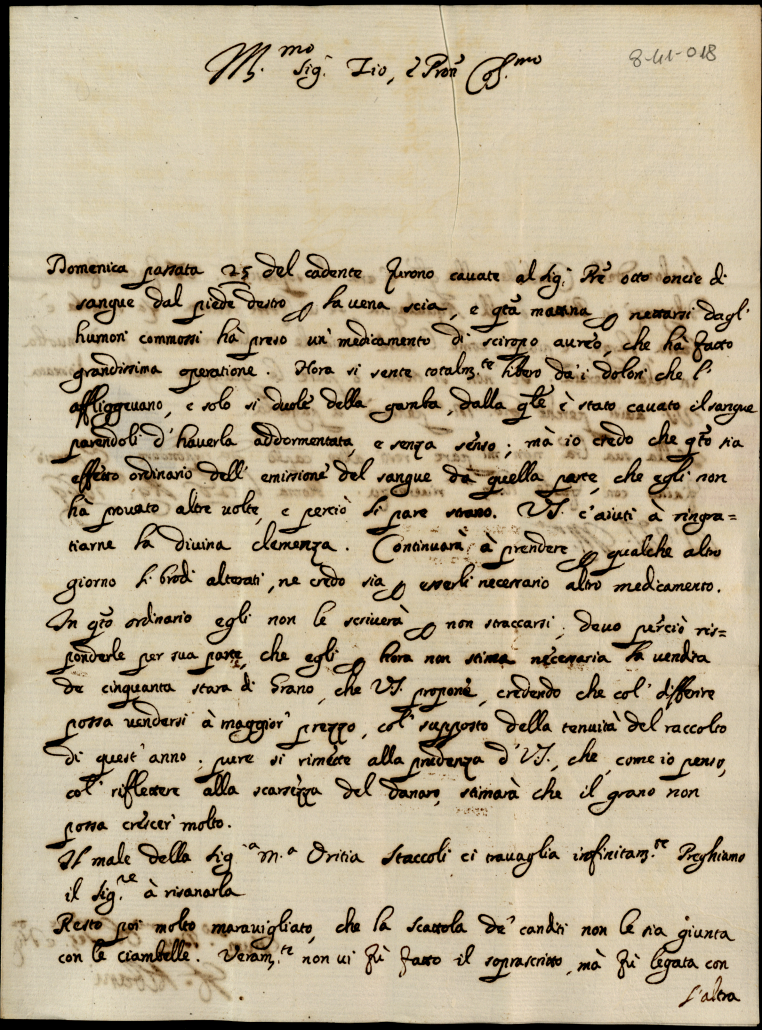 8-41-018
M.mo Sig.r Zio, è Pron Col.mo
Domenica passata 25 del cadente furono cavate al Sig.r Pre otto oncie di
sangue dal piede destro p la vena scia, e qta mattina p nettarsi dagl'
humori commossi hà preso un' medicamento di sciropo aureo, che hà fatto
grandissima operatione. Hora si sente totalm.te libero da' i dolori che l'
affliggevano, e solo si duole della gamba, dalla qle è stato cavato il sangue
parendoli d'haverla addormentata, e senza senso; mà io credo che qto sia
effetto ordinario dell' emissione del sangue da quella parte, che egli non
hà provato altre volte, e perciò li pare strano. VS. c'aiuti à ringra=
tiarne la divina clemenza. Continuarà à prendere p qualche altro
giorno li brodi alterati, ne credo sia p esserli necessario altro medicamento.
In qto ordinario egli non le scriverà p non straccarsi; devo perciò ris=
ponderle per sua parte, che egli p hora non stima necessaria la vendita
de cinquanta stara di Grano, che VS. propone, credendo che col' differire
possa vendersi à maggior' prezzo, col' supposto della tenuità del raccolto
di quest' anno; pure si rimette alla prudenza d' VS., che, come io penso,
col' riflettere alla scarsezza del danaro, stimarà che il grano non
possa crescer' molto.
Il male della Sig.a M.a Oritia Staccoli ci travaglia infinitam.te Preghiamo
il Sig.re à risanarla
Resto poi molto maravigliato, che la scattola de' canditi non le sia giunta
con le ciambelle. Veram.te non vi fù fatto il soprascritto, mà fù legata con
l'altra